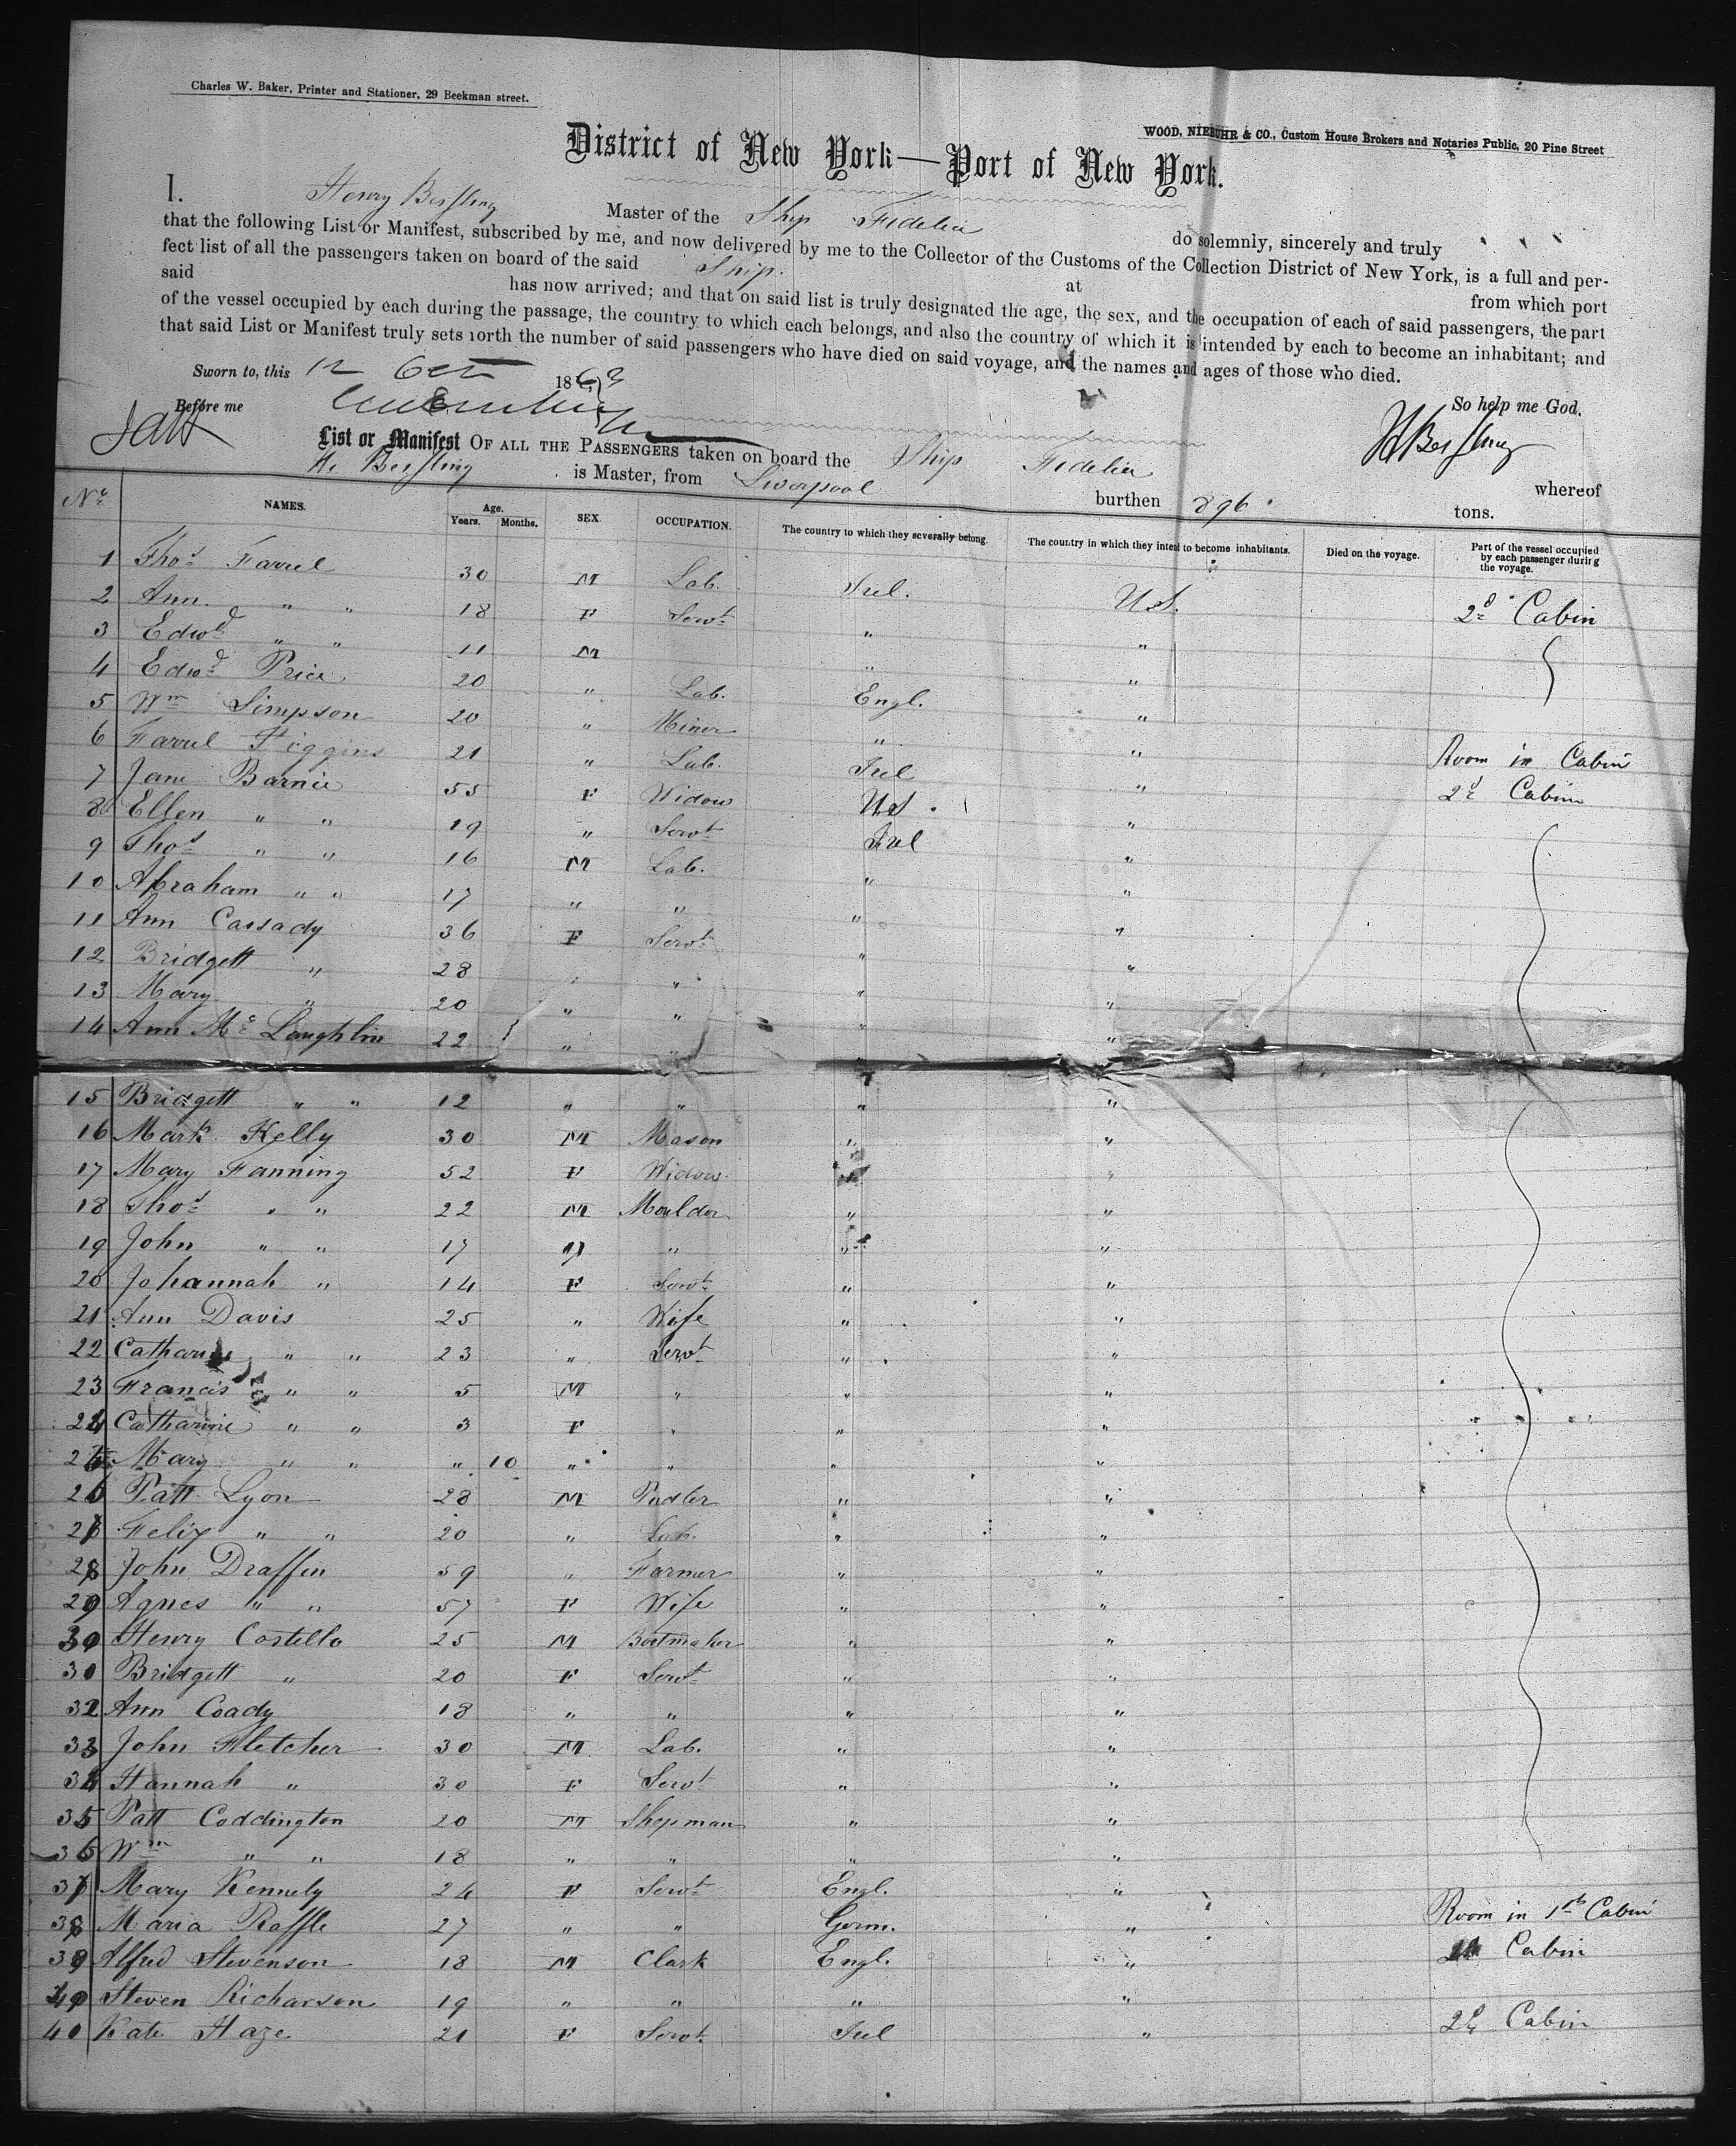 Charles W. Baker, Printer and Stationer, 29 Beekman street.
WOOD, NIEBUHR & CO., Custom House Brokers and Notaries Public, 20 Pine Street
District of New York—Port of New York.
I. Henry Master of the Ship Fidelia do solemnly, sincerely and truly
that the following List or Manifest, subscribed by me, and now delivered by me to the Collector of the Customs of the Collection District of New York, is a full and per-
fect list of all the passengers taken on board of the said Ship. at from which port
said has now arrived; and that on said list is truly designated the age, the sex, and the occupation of each of said passengers, the part
of the vessel occupied by each during the passage, the country to which each belongs, and also the country of which it is intended by each to become an inhabitant; and
that said List or Manifest truly sets forth the number of said passengers who have died on said voyage, and the names and ages of those who died.
Sworn to, this 12 Oct 1863 So help me God.
Before me
List or Manifest OF ALL THE PASSENGERS taken on board the Ship Fidelia whereof
H. is Master, from Liverpool burthen 896 tons.
No NAMES. Age. Years. Months. SEX. OCCUPATION. The country to which they severally belong. The country in which they intend to become inhabitants. Died on the voyage. Part of the vessel occupied by each passenger during the voyage.
1 Thos Farrel 30 M Lab. Irel. U.S. 2d Cabin
2 Ann " " 18 F Servt " "
3 Edwd " " 11 M " "
4 Edwd Price 20 " Lab. Engl. "
5 Wm Simpson 20 " Miner " "
6 Farrel Figgins 21 " Lab. Irel " Room in Cabin
7 Jane Barnie 55 F Widow U.S. " 2d Cabin
8 Ellen " " 19 " Servt Irel "
9 Thos " " 16 M Lab. " "
10 Abraham " " 17 " " " "
11 Ann Cassady 36 F Servt " "
12 Bridgett " 28 " " " "
13 Mary " 20 " " " "
14 Ann Mc Laughlin 22 " " " "
15 Bridgett " " 12 " " " "
16 Mark Kelly 30 M Mason " "
17 Mary Fanning 52 F Widow " "
18 Thos " " 22 M Moulder " "
19 John " " 17 " " " "
20 Johannah " 14 F Servt " "
21 Ann Davis 25 " Wife " "
22 Catharine " " 23 " Servt " "
23 Francis " " 5 M " " "
24 Catharine " " 3 F " " "
25 Mary " " " 10 " " " "
26 Patt Lyon 28 M Pudler " "
27 Felix " " 20 " Lab. " "
28 John Draffin 59 " Farmer " "
29 Agnes " " 57 F Wife " "
30 Henry Costello 25 M Bootmaker " "
30 Bridgett " 20 F Servt " "
32 Ann Coady 18 " " " "
33 John Fletcher 30 M Lab. " "
34 Hannah " 30 F Servt " "
35 Patt Coddington 20 M Shopman " "
36 Wm " " 18 " " " "
37 Mary Kennely 24 F Servt Engl. "
38 Maria Raffle 27 " " Germ. " Room in 1st Cabin
39 Alfred Stevenson 18 M Clark Engl. " 2d Cabin
40 Steven Richarson 19 " " " "
40 Kate Haze 21 F Servt Irel " 2d Cabin